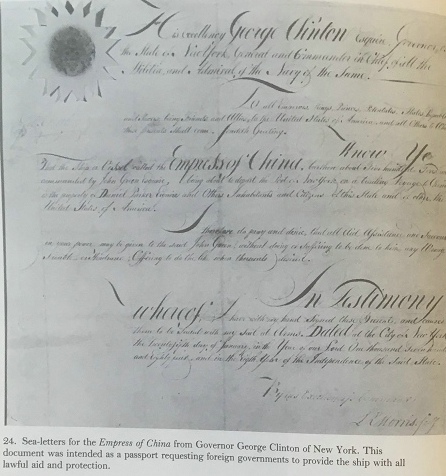 His excellency George Clinton Esquire Governor
the State of New York General and Commander in Chief of all the
Militia, and Admiral of the Navy of the Same.
To all
and being Friends and Allies to the United States of America and all Others
this Presents Shall come. Greeting.
Know Ye
that the Ship or Vessel called the Empress of China, burthen about
commanded by John Green being about to depart the Port of New York, on a
the property of Daniel Parker and Others Inhabitants and Citizens of this State and
United States of America.
are to pray and desire that all Aid Assistance and
in your power may be given to the said John Green, without doing or suffering to be done to him any
Offering to do the like when thereunto desired.
In Testimony
whereof I have with my hand Signed these Presents, and caused
them to be Sealed with my Seal at Arms. Dated at the City of New York
the day of January, in the Year of our Lord One thousand Seven
and Eighty and in the Eighth Year of the Independence of the Said State.
By his Excellency's Command
24. Sea-letters for the Empress of China from Governor George Clinton of New York. This
document was intended as a passport requesting foreign governments to provide the ship with all
lawful aid and protection.